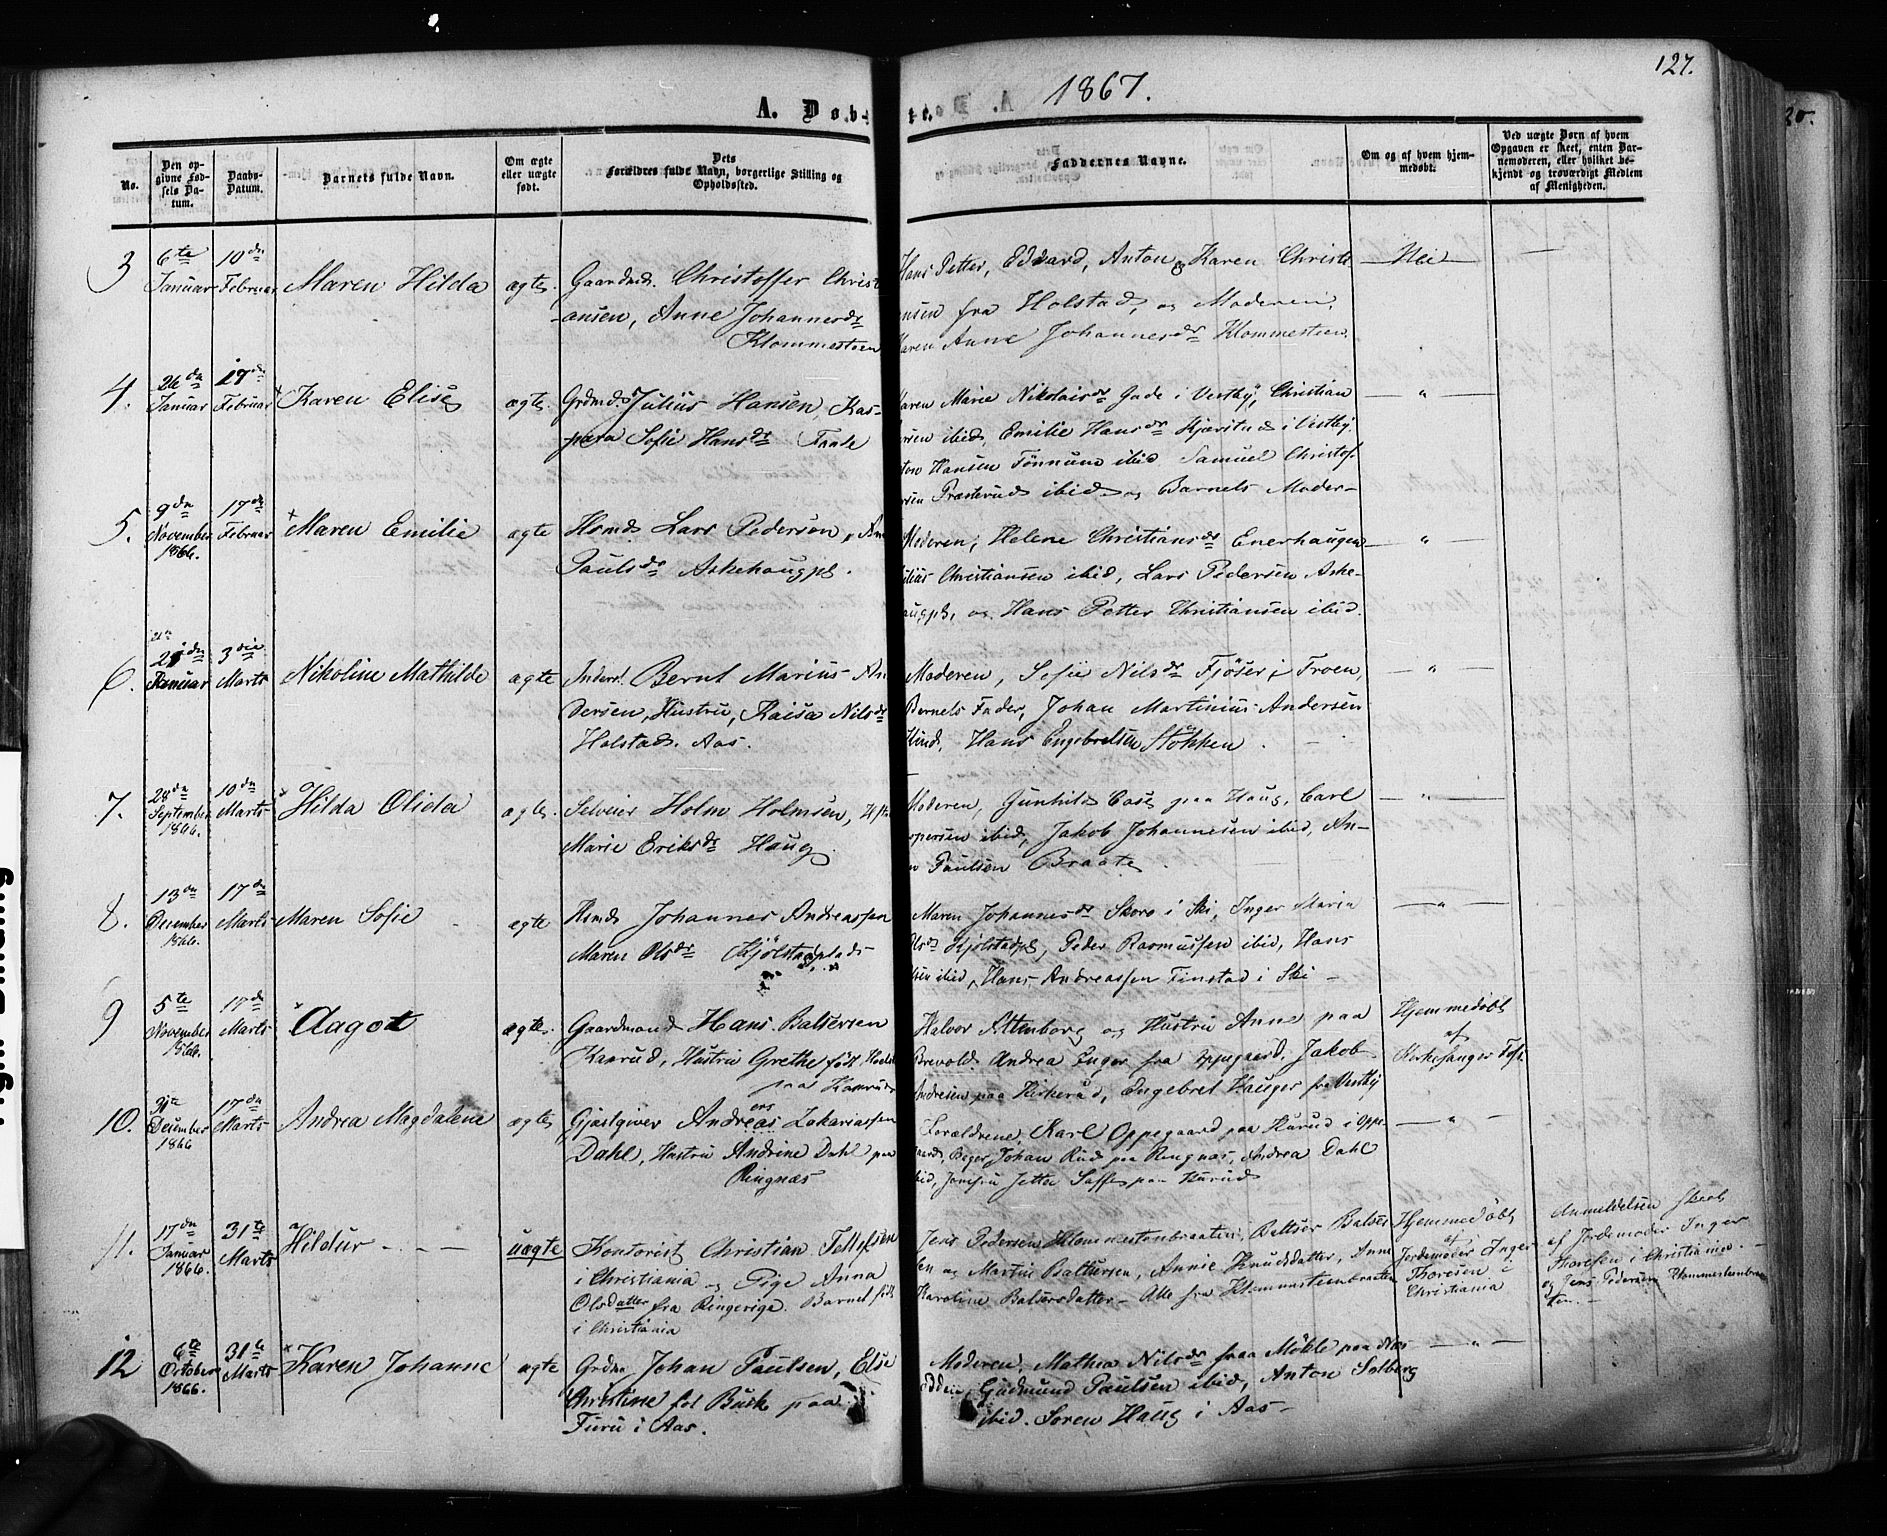 A. Døb-
te.
1867.
127.
No.
Den op-
givne Fød-
sels Da-
tum.
Daabs-
Datum.
Barnets fulde Navn.
Om ægte
eller uægte
født.
Dets
Forældres fulde Navn, borgerlige Stilling og
Opholdssted.
Faddernes Navne.
Om og af hvem hjem-
medøbt.
Ved uægte Børn af hvem
Opgaven er skeet, enten Bar-
nemoderen, eller hvilket be-
kjendt og troværdigt Medlem
af Menigheden.
3
6te
Januar
10de
Februar
Maren Hilda
ægte.
Gaardmd. Christoffer Christi-
ansen, Anne Johannesdr
Klommesteen
Hans Petter, Edvard, Anton og Karen Christi-
ansen fra Holstad, og Moderen
Karen Anne Johannesdr Klommesteen.
Nei
4.
26de
Januar
17de
Februar
Karen Elise
ægte.
Grdmd. Julius Hansen, Kas-
para Sofie Hansdr Taate
Maren Marie Nikolaisdr Gade i Vestby, Christian
ibid, Emilie Hansdr Kjærstad i Vestby.
Hansen Tønnum ibid Samuel Christof-
fersen Præsterud ibid og Barnets Moder
"
5.
9de
November
1866.
17de
Februar
Maren Emilie
ægte
Hsmd Lars Pedersen,
Paulsdr Askehaugpl.
Moderen, Helene Christiansdr Enerhaugen
Julius Christiansen ibid, Lars Pedersen Aske-
haugpl, og Hans Petter Christiansen ibid.
"
6.
Januar
3die
Marts
Nikoline Mathilde
ægte
Inderst Bernt Marius An-
dersen, Hustru, Raisa Nilsdr
Holstad. Aas.
Moderen, Sofie Nilsdr Fjøser i Froen,
Barnets Fader, Johan Martinius Andersen
Hans Engebretsen Støkken.
"
7.
28de
September
1866.
10de
Marts
Hilda Olida
ægte.
Selveier Holm Holmsen,
Marie Eriksdr Haug
Moderen, Gunhild Case paa Haug, Carl
ibid, Jakob Johannesen ibid, An-
Paulsen Braate
"
8.
13de
December
1866.
17de
Marts
Maren Sofie
ægte
Hsmd Johannes Andreassen
Maren Olsdr Kjølstadplads
Maren Johannesdr Skoro i Ski, Inger Maria
Olsdr Kjølstadpl, Peder Rasmussen ibid, Hans
ibid, Hans Andreassen Finstad i Ski
"
9
5te
November
1866.
17de
Marts
Aagot
ægte.
Gaardmand Hans Baltsersen
Kaarud, Hustru Grethe født
paa Kaarud
Halvor Altenborg og Hustru Anne paa
Brevold. Andrea Inger fra Oppegaard, Jakob
Andresen paa Kirkerud, Engebret Hauger fra Vestby
Hjemmedøbt
af
Kirkesanger Toft
10.
31te
December
1866
17de
Marts
Andrea Magdalene
ægte
Gjæstgiver Andreas Zakariassen
Dahl, Hustru Andrine Dahl paa
Ringnæs
Forældrene, Karl Oppegaard paa Kurud i Oppe-
gaard, Johan Rud paa Ringnæs, Andrea Dahl
ibid, Jomfru Jette paa Kurud
"
11.
17de
Januar
1866.
31te
Marts
Hildur
uægte
Kontorist Christian Tellefsen
i Christiania og Pige Anna
Olsdatter fra Ringerige. Barnet født
i Christiania
Jens Pedersen Klommestenbraaten, Baltser Baltser-
sen og Martin Baltsersen, Annie Knudsdatter, Anne
Karoline Baltsersdatter – Alle fra Klommesteenbraaten
Hjemmedøbt
af
Jordemoder Inger
Thoresen i
Christiania
Anmeldelsen skeet
af Jordemoder Inger
Thoresen i Christiania
og Jens Pedersen Klommestenbraa-
ten.
12
6te
October
1866.
31te
Marts
Karen Johanne
ægte
Grdm Johan Paulsen, Else
Christine fød Busk paa
Furu i Aas.
Moderen, Mathea Nilsdr fraa Møkle paa Næs-
odden, Gudmund Paulsen ibid, Anton Solberg
ibid. Soren Haug i Aas
"